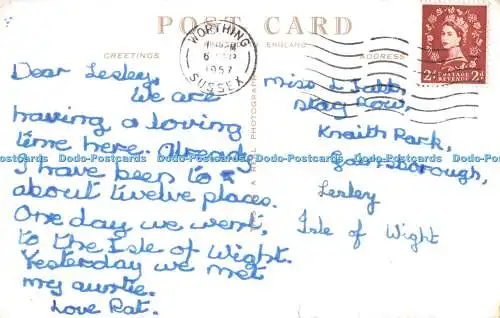 POST CARD
GREETINGS
ENGLAND
ADDRESS
WORTHING
6
1957
SUSSEX
2d POSTAGE REVENUE 2d
A REAL PHOTOGRAPH
Dear Lesley,
We are
having a loving
time here. Already
I have been to
about twelve places.
One day we went,
to the Isle of Wight.
Yesterday we met
my auntie.
Love Pat.
Miss L Jabb,
Stag Row,
Knaith Park,
Gainsborough,
Lesley
Isle of Wight
Dodo-Postcards Dodo-Postcards Dodo-Postcards Dodo-Postcards Dodo-Postcards